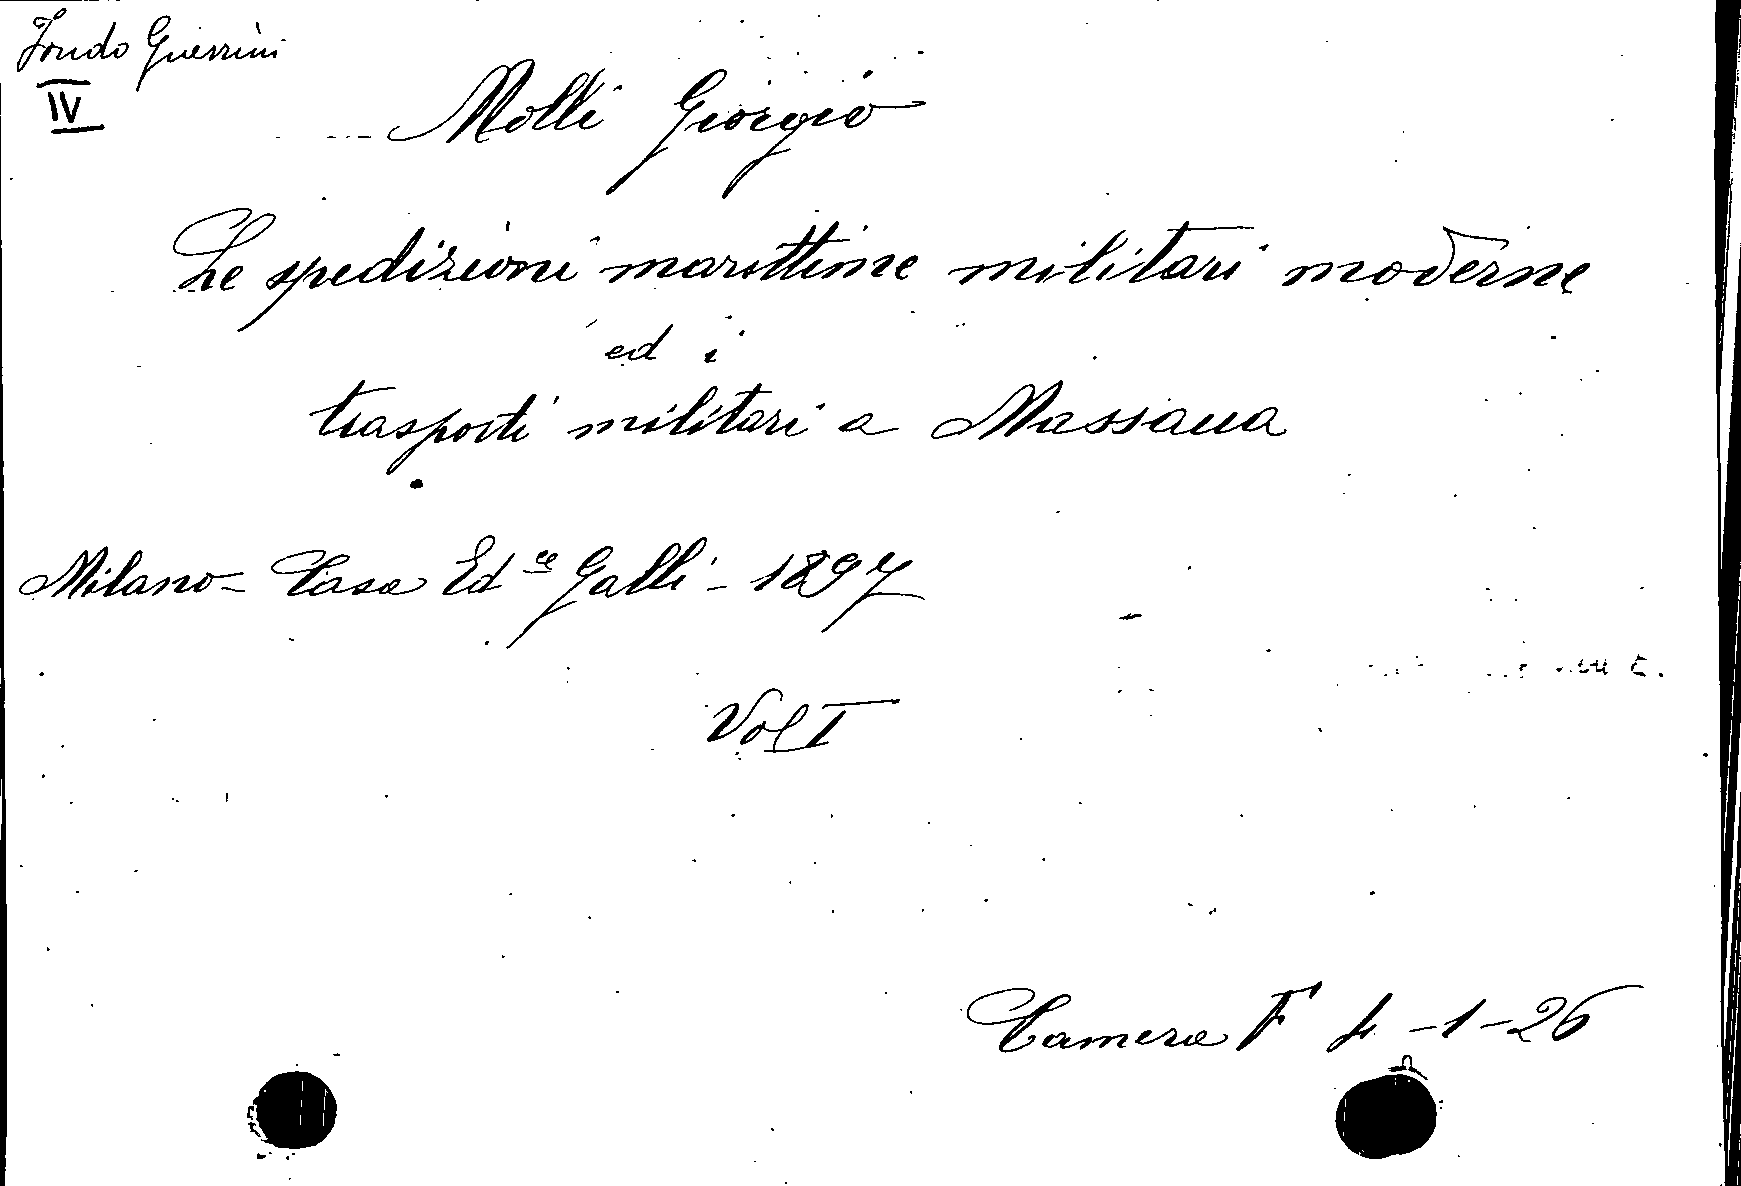 Fondo Guerrini
IV
Molli Giorgio
Le spedizioni marittime militari moderne
ed i
trasporti militari a Massaua
Milano - Casa Ed ce Galli - 1897
Vol I
Camera F 4-1-26